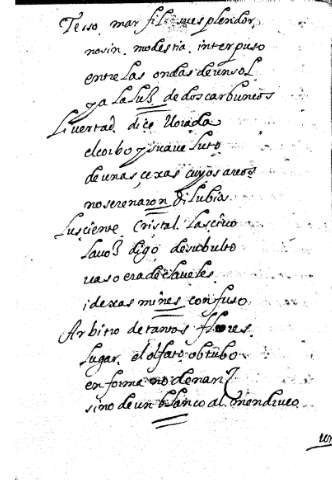 Terso marfil su esplendor
no sin modestia interpuso
entre las ondas de un sol
y a la luz de dos carbuncos
Livertad dice llorada
el corbo y suave luto
de unas cexas cuyos arcos
no serenaron dilubios
Lusciente cristal lascivo
la voz digo de su bulto
vaso era de claveles
i de xasmines confuso
Arbitro de tantas flores
lugar el olfato obtubo
en forma no de nariz
sino de un blanco almendruco